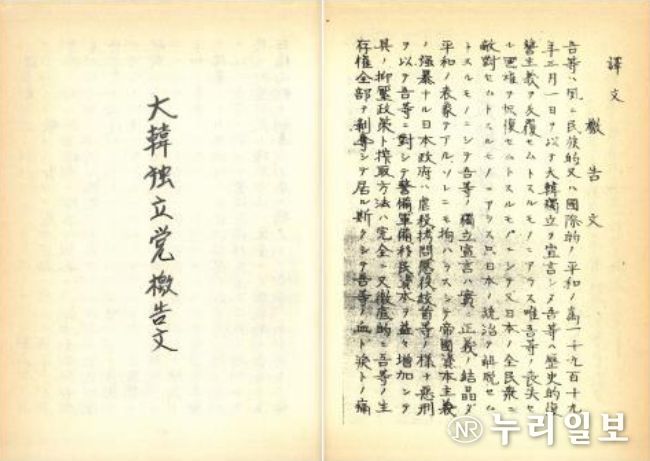 大韓独立党檄告文
譯文
檄告文
吾等ハ夙ニ民族的又ハ國際的ノ平和ノ為一千九百十九
年三月一日ヲ以テ大韓獨立ヲ宣言シタ吾等ハ歴史的復
讐主義ヲ反復セムトスルモノニアラス唯吾等ノ喪失セ
ル國權ヲ恢復セムトスルモノニシテ又日本ノ全民衆ニ
敵對セムトスルモノニアラス只日本ノ統治ヲ解脱セム
トスルモノニシテ吾等ノ獨立宣言ハ實ニ正義ノ結晶ダ
平和ノ表象テアルソレニモ拘ハラスシテ帝國資本主義
ノ強暴ナル日本政府ハ虐殺拷問懲役絞首等ノ様々悪刑
ヲ以テ吾等ニ對シテ警備軍備移民資本ヲ益々増加シテ
其ノ抑壓政策ト搾取方法ハ完全ニ又徹底的ニ吾等ノ生
存權全部ヲ剥奪シテ居ル斯クシテ吾等ノ血ト涙トノ痛
NR 누리일보